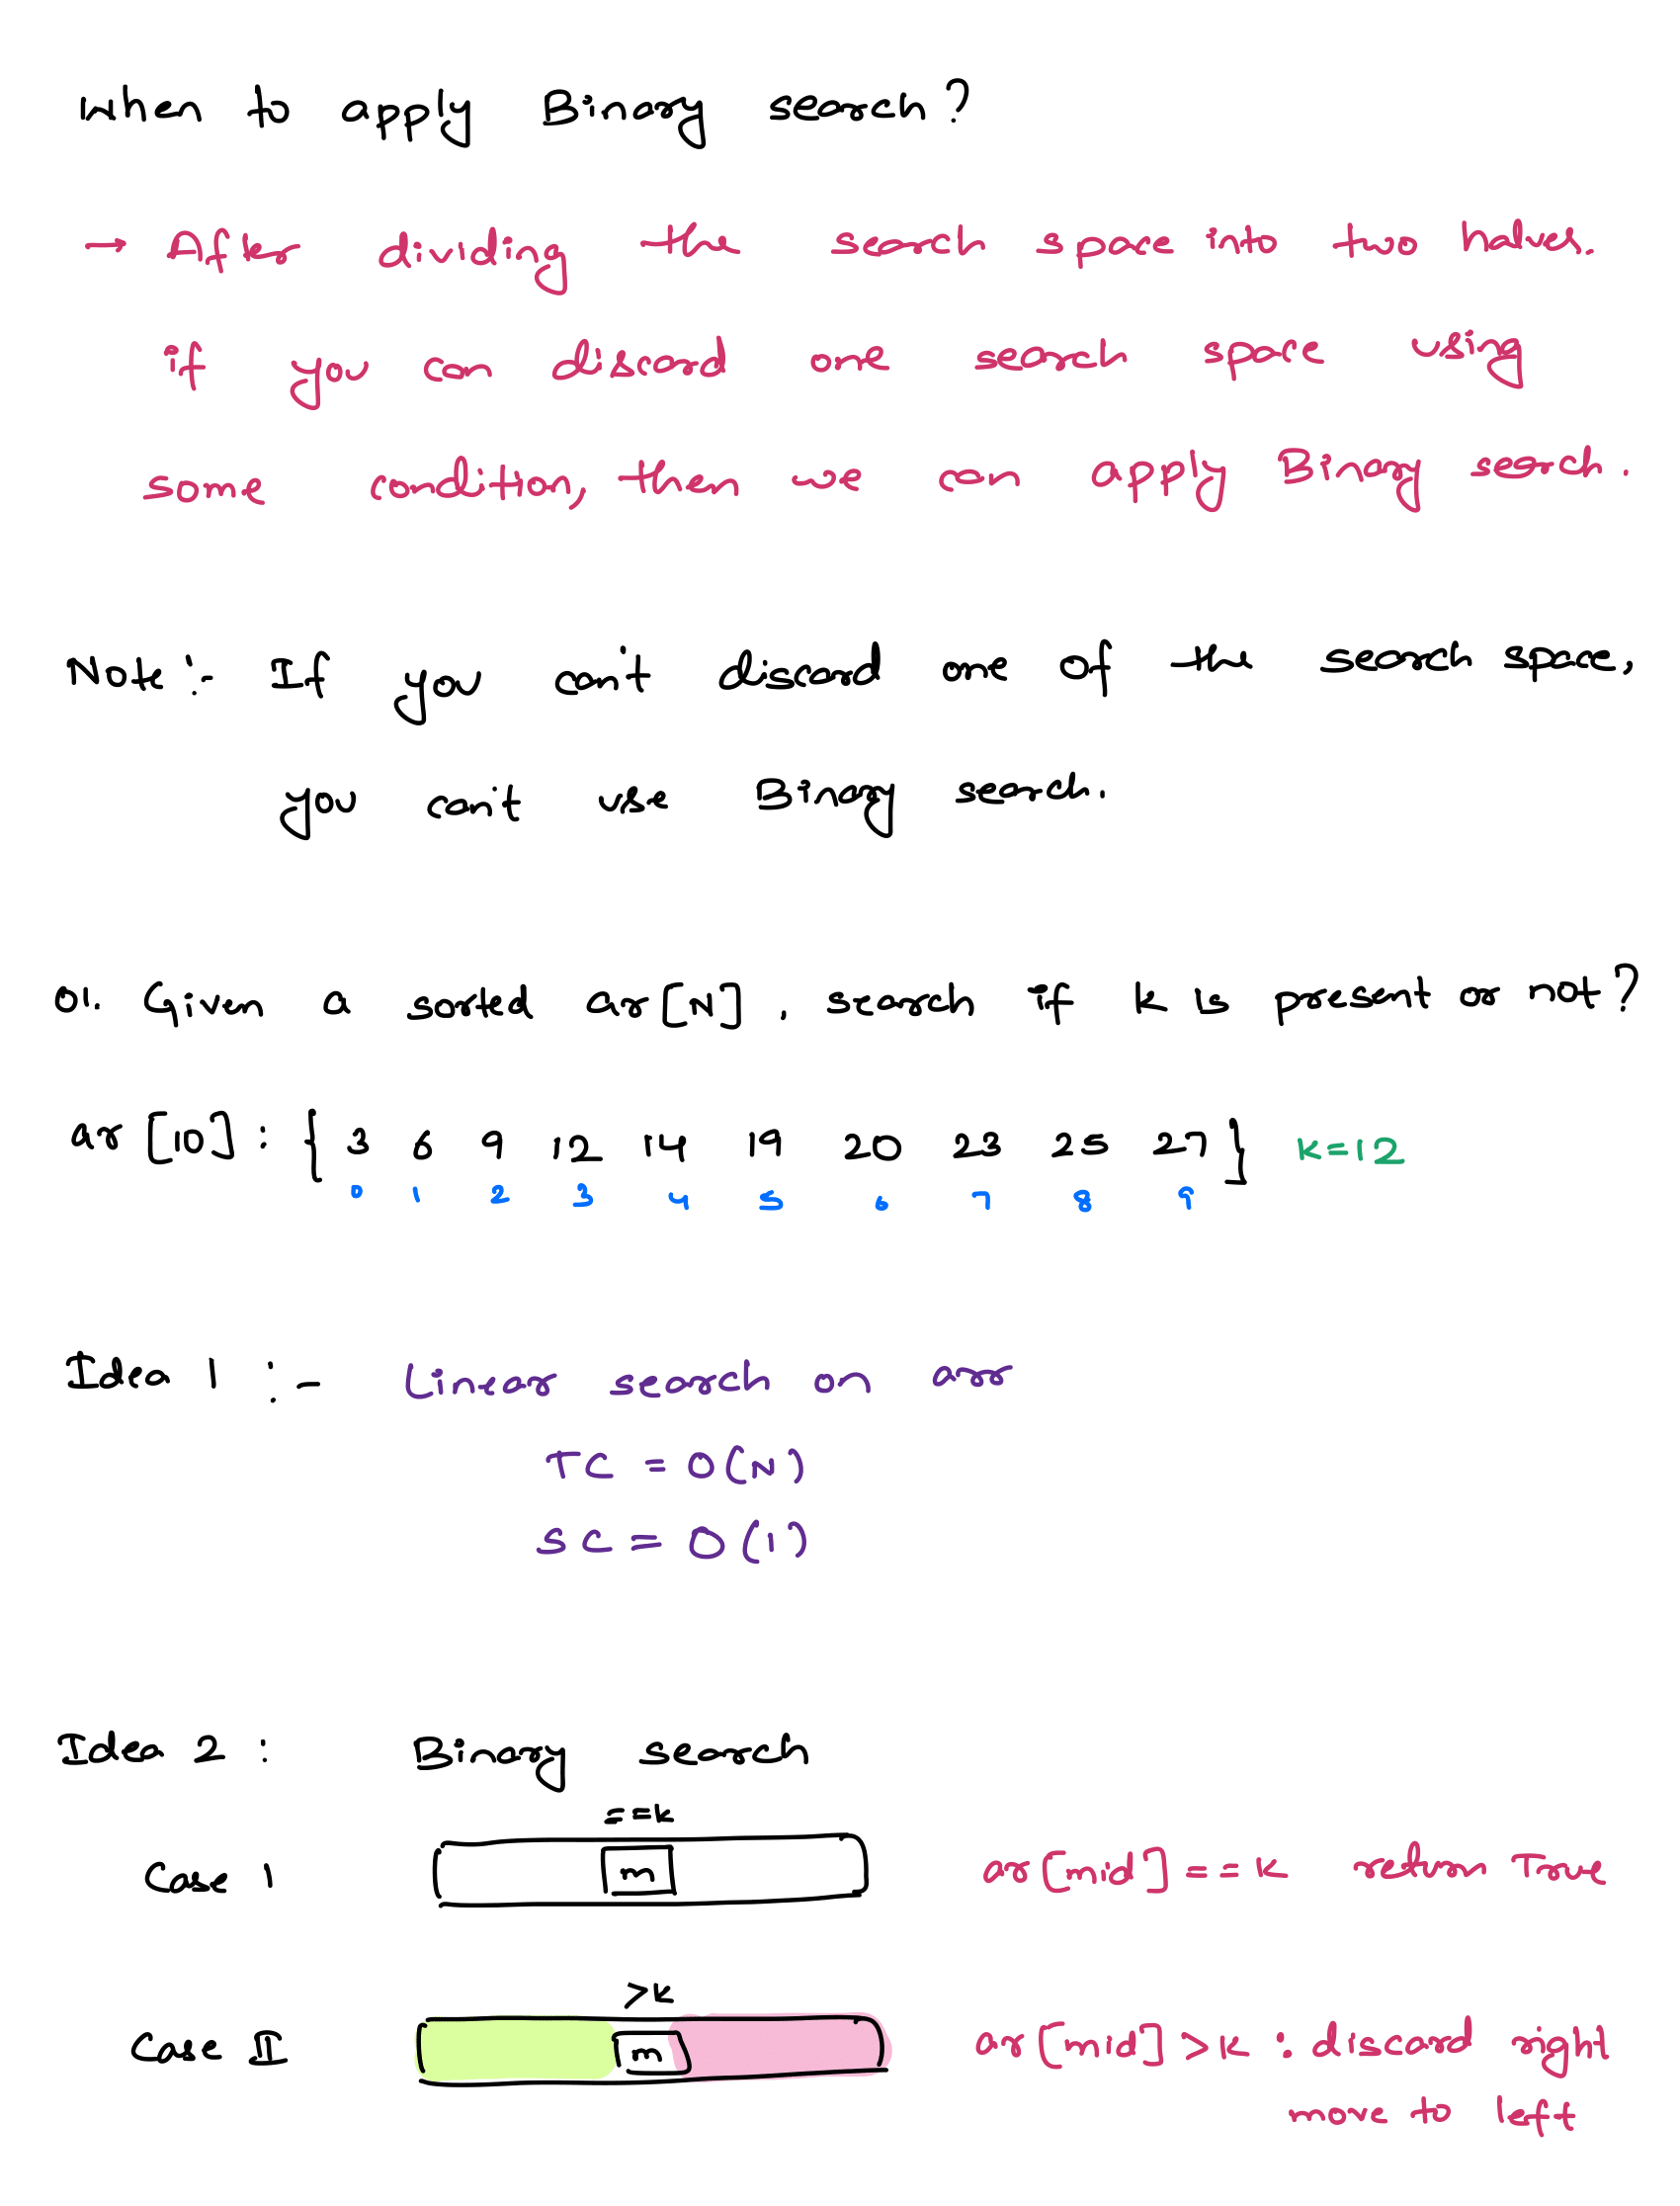 When to apply Binary search?
→ After dividing the search space into two halves.
if you can discard one search space using
some condition, then we can apply Binary search.
Note :- If you can't discard one of the search space,
you can't use Binary search.
01. Given a sorted ar[N], search if k is present or not?
ar [10] : { 3 6 9 12 14 19 20 23 25 27 } K=12
0 1 2 3 4 5 6 7 8 9
Idea 1 :- Linear search on arr
TC = O(N)
SC = O(1)
Idea 2 : Binary search
==k
Case 1 m ar[mid]==k return True
>k
Case II m ar[mid]>k : discard right
move to left